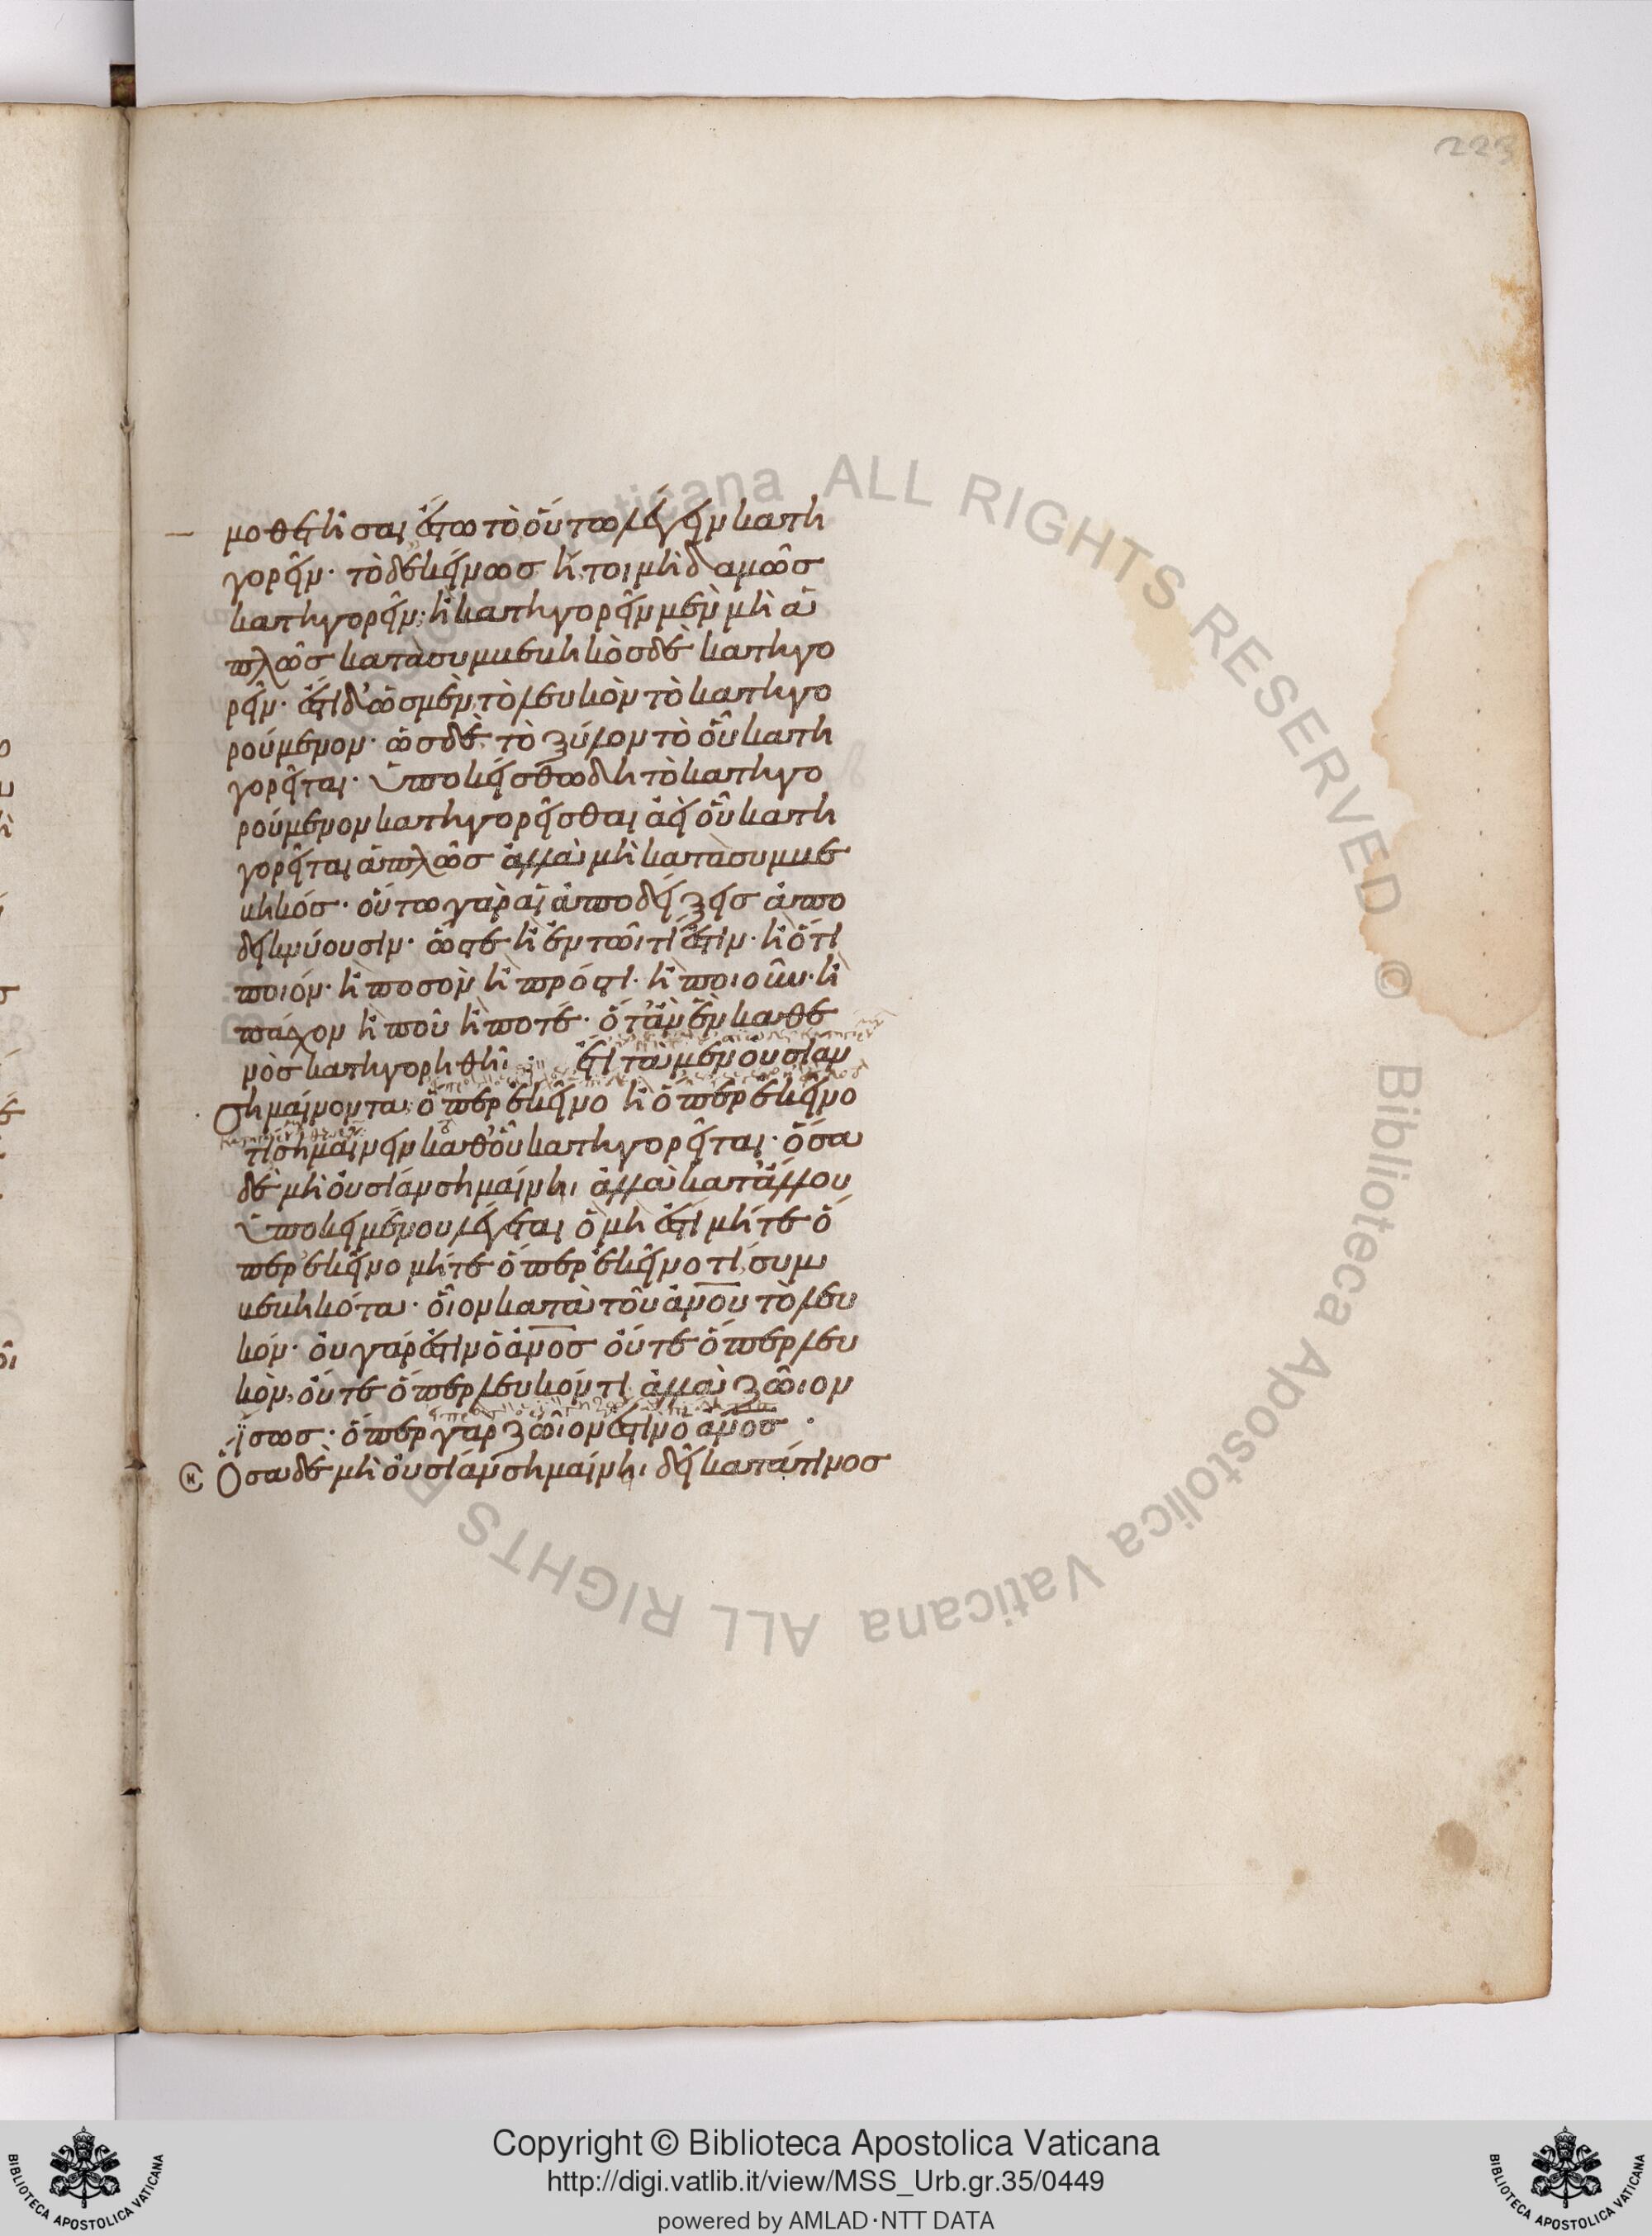 223
νοθετῆσαι ἔστω τὸ οὕτω λέγειν κατη
γορεῖν· τὸ δ' ἐκείνως ἤτοι μὴδαμῶς
κατηγορεῖν· ἢ κατηγορεῖν μὲν μὴ ἁ
πλῶς κατὰ συμβεβηκὸς δὲ κατηγο
ρεῖν. ἔστι δ' ὡς μὲν τὸ λευκὸν τὸ κατηγο
ρούμενον· ὡς δὲ τὸ ξύλον τὸ οὗ κατη
γορεῖται. ὑποκείσθω δὴ τὸ κατηγο
ρούμενον κατηγορεῖσθαι ἀεὶ οὗ κατη
γορεῖται ἁπλῶς ἀλλὰ μὴ κατὰ συμβε
βηκός· οὕτω γὰρ αἱ ἀποδείξεις ἀπο
δεικνύουσιν. ὥστε ἢ ἐν τῶι τί ἐστιν· ἢ ὅτι
ποιόν· ἢ ποσὸν ἢ πρός τι· ἢ ποιοῦν· ἢ
πάσχον ἢ ποῦ ἢ ποτέ· ὅταν ἓν καθ' ἑ
νὸς κατηγορηθῆι : ἔτι τὰ μὲν οὐσίαν
σημαίνοντα ὅπερ ἐκεῖνο ἢ ὅπερ ἐκεῖνό
τι σημαίνειν καθ' οὗ κατηγορεῖται· ὅσα
δὲ μὴ οὐσίαν σημαίνηι ἀλλὰ κατ' ἄλλου
ὑποκειμένου λέγεται ὃ μὴ ἔστι μήτε ὅ
περ ἐκεῖνο μήτε ὅπερ ἐκεῖνό τι, συμ
βεβηκότα· οἷον κατὰ τοῦ ἀνου τὸ λευ
κόν· οὐ γάρ ἐστιν ὁ ἀνος οὔτε ὅπερ λευ
κὸν, οὔτε ὅπερ λευκόν τι· ἀλλὰ ζῶιον
ἴσως· ὅπερ γὰρ ζῶιόν ἐστιν ὁ ἀνος·
Ὅσα δὲ μὴ οὐσίαν σημαίνηι δεῖ κατά τινος
Copyright © Biblioteca Apostolica Vaticana
http://digi.vatlib.it/view/MSS_Urb.gr.35/0449
powered by AMLAD·NTT DATA